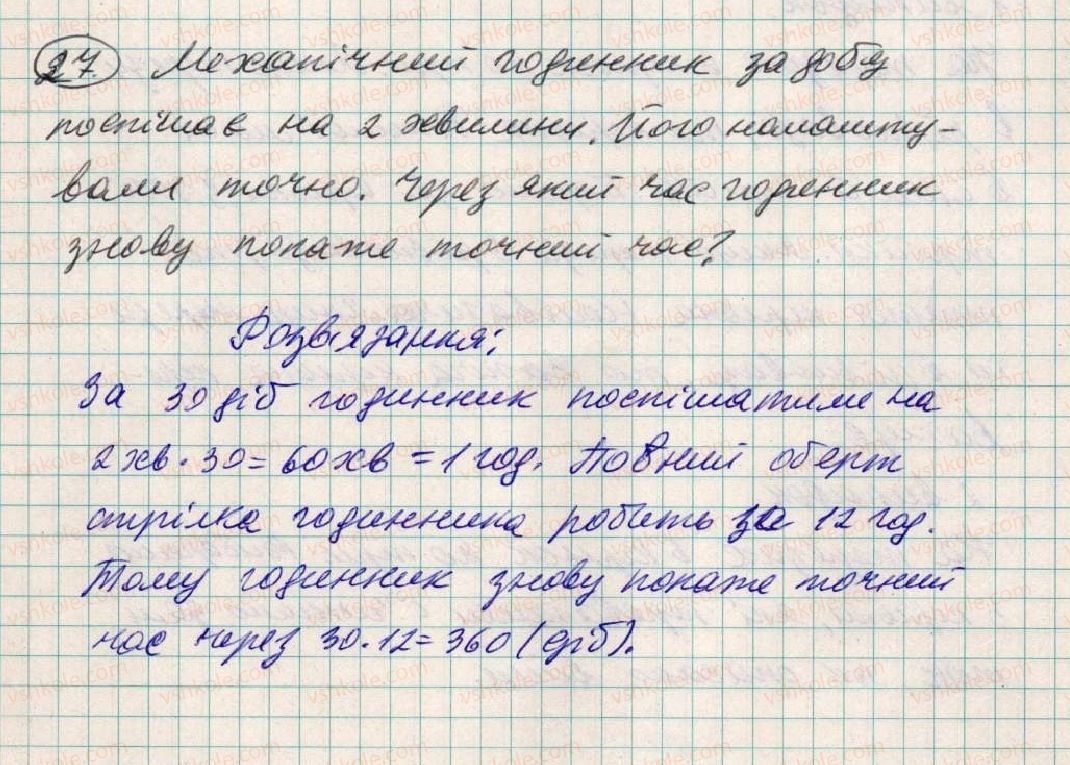 27 Механічний годинник за добу
поспішає на 2 хвилини. Його налашту-
вали точно. Через який час годинник
знову покаже точний час?
Розв'язання:
За 30 діб годинник поспішатиме на
2 хв · 30 = 60 хв = 1 год. Повний оберт
стрілка годинника робить за 12 год.
Тому годинник знову покаже точний
час через 30 · 12 = 360 (діб).